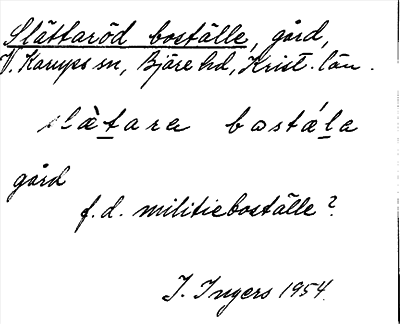 Slättaröd boställe, gård,
V. Karups sn, Bjäre hd, Krist. län.
slà̱tarø bostá̱la
gård
f.d. militieboställe?
I. Ingers 1954.